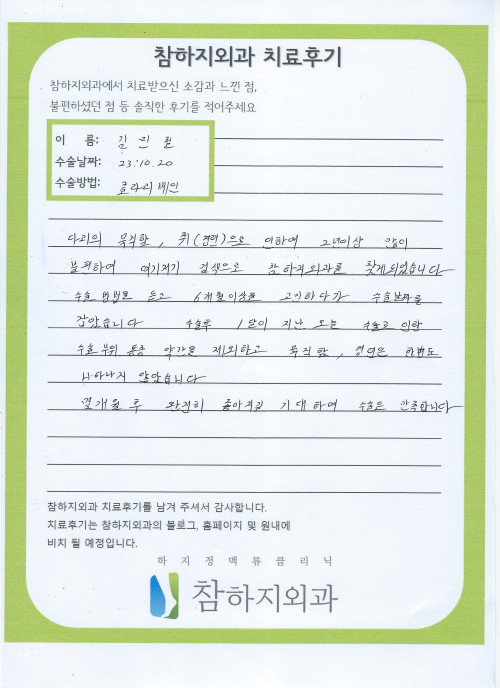 참하지외과 치료후기
참하지외과에서 치료받으신 소감과 느낀 점,
불편하셨던 점 등 솔직한 후기를 적어주세요
이 름: 김민철
수술날짜: 23.10.20
수술방법: 클라리베인
다리의 묵직함, 쥐(경련)으로 인하여 2년이상 많이
불편하여 여기저기 검색으로 참하지외과를 찾게되었습니다
수술 방법을 듣고 6개월이상을 고민하다가 수술날짜를
잡았습니다 수술후 1달이 지난 오늘 수술로 인한
수술부위 통증 약간을 제외하고 묵직함, 경련은 한번도
나타나지 않았습니다
몇개월 후 완전히 좋아지길 기대하며 수술은 만족합니다
참하지외과 치료후기를 남겨 주셔서 감사합니다.
치료후기는 참하지외과의 블로그, 홈페이지 및 원내에
비치 될 예정입니다.
하지정맥류클리닉
참하지외과